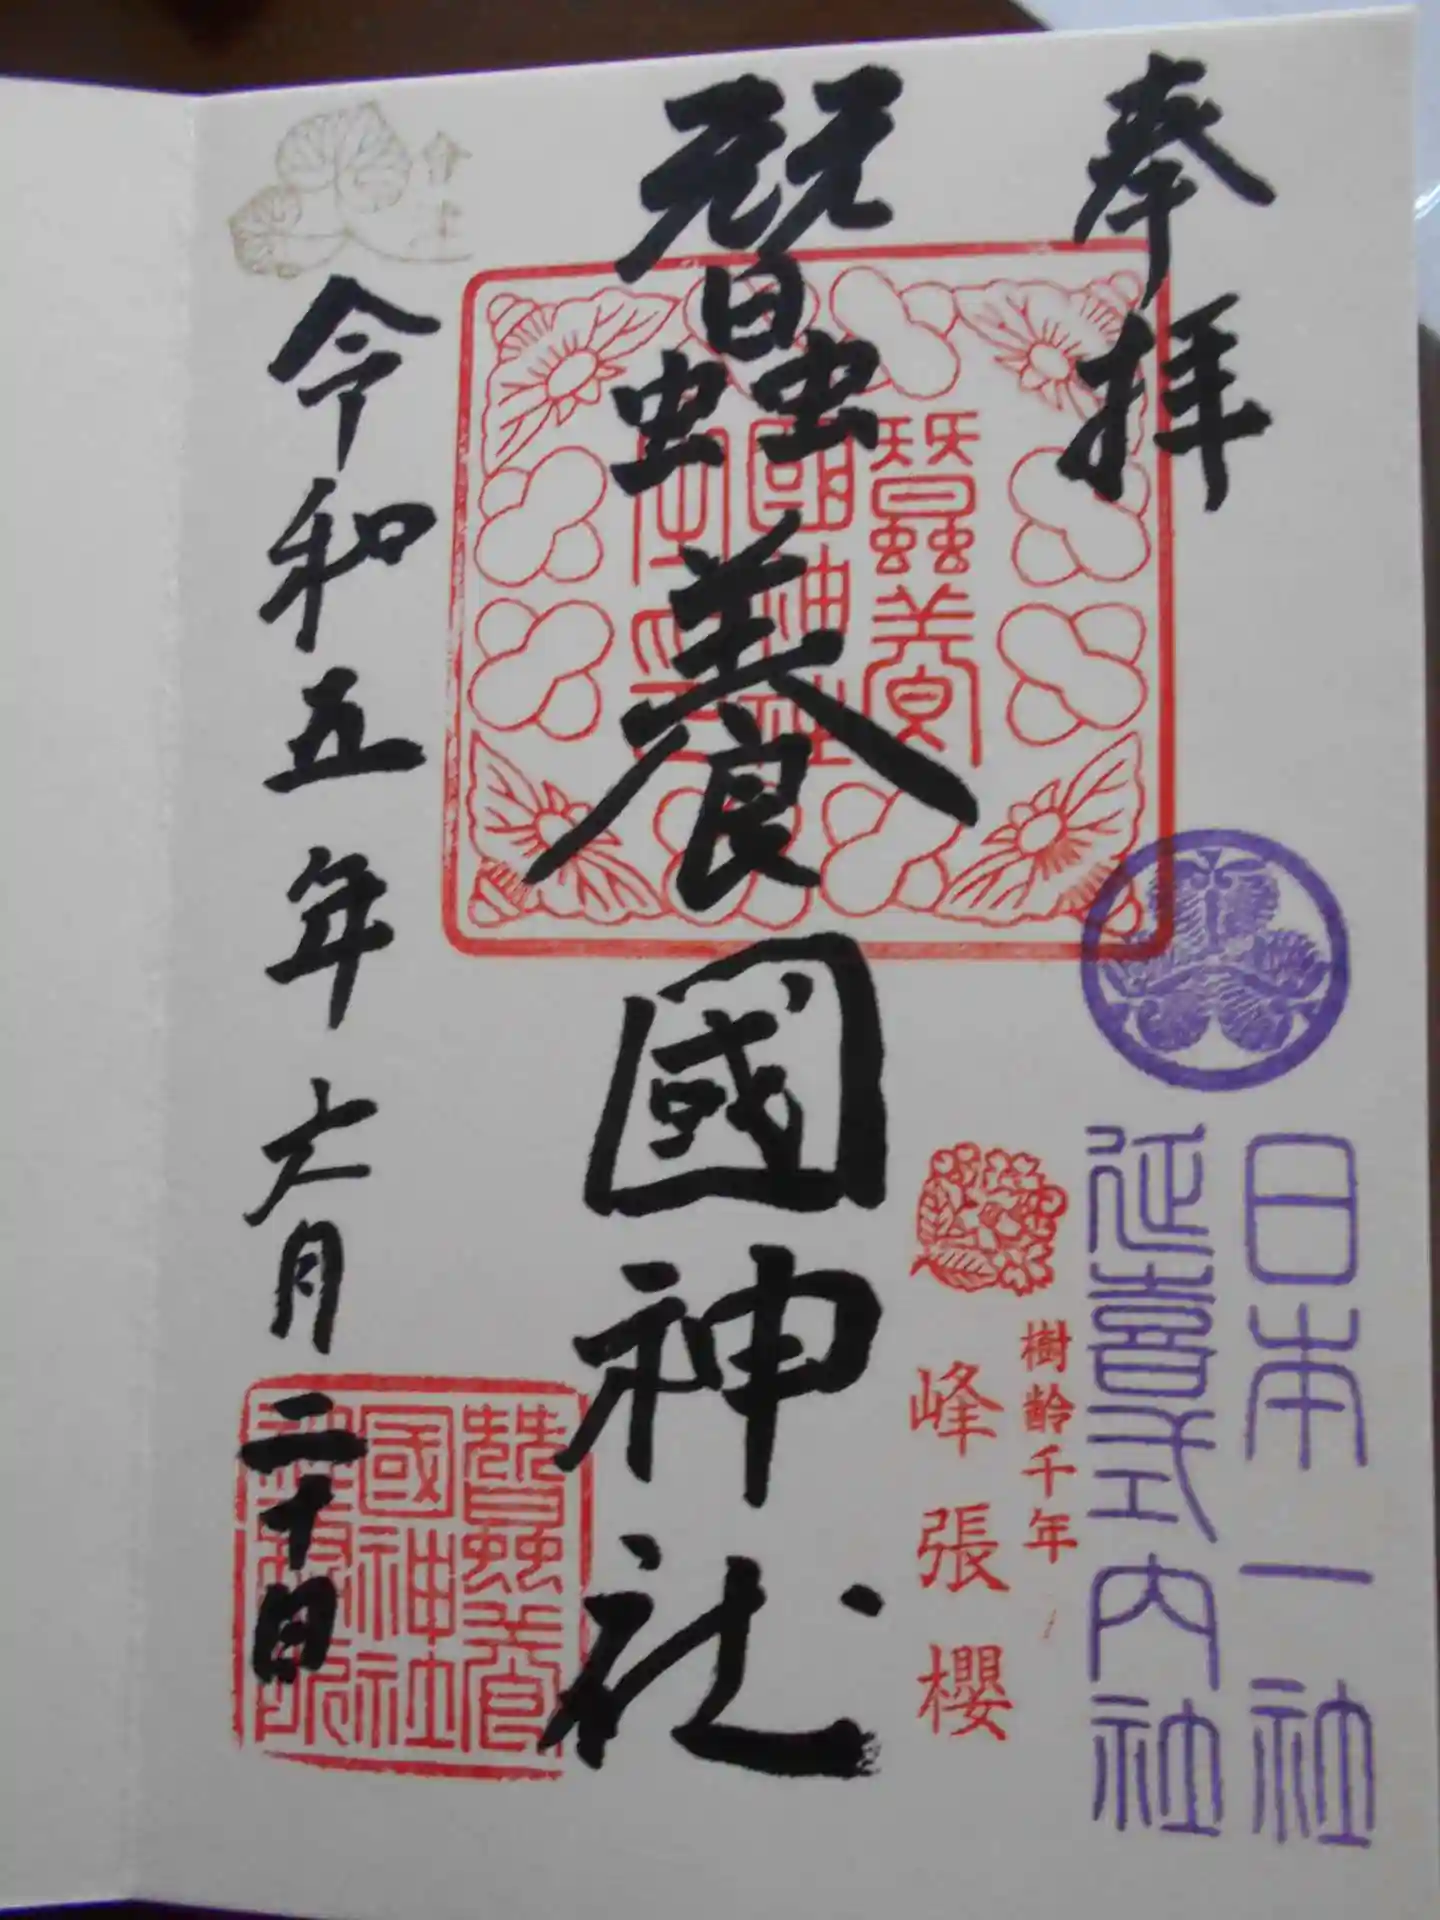 奉拝
日本一社
延喜式内社
樹齢千年
峰張櫻
蠶養國神社
蠶養
國神社
會津
令和五年六月二十日
蠶養
國神社